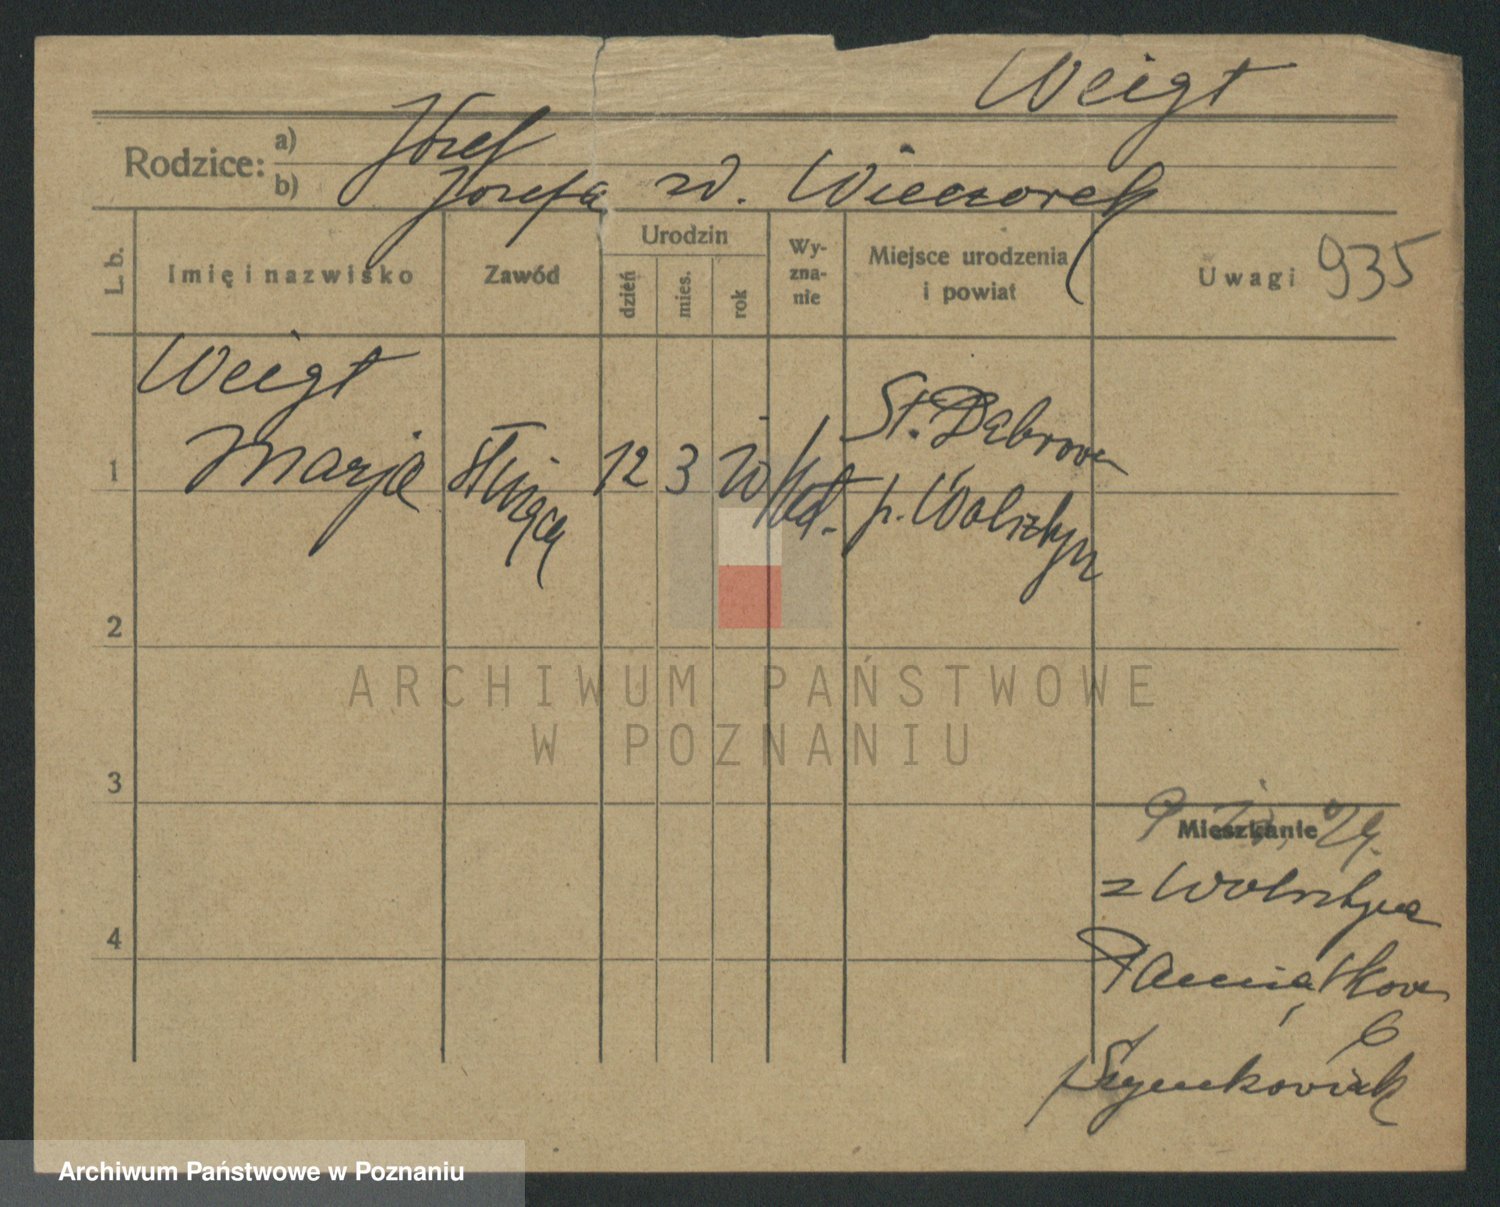 Weigt
Rodzice:
a) Józef
b) Józefa zd. Wieczorek
L. b.
Imię i nazwisko
Zawód
Urodzin
dzień
mies.
rok
Wy-
zna-
nie
Miejsce urodzenia
i powiat
Uwagi 935
Weigt
1 Marja służąca 12 3 kat. St. Dąbrowa
p. Wolsztyn
2
ARCHIWUM PAŃSTWOWE
W POZNANIU
3
Mieszkanie
z Wolsztyna
4
6
Szymkowiak
Archiwum Państwowe w Poznaniu